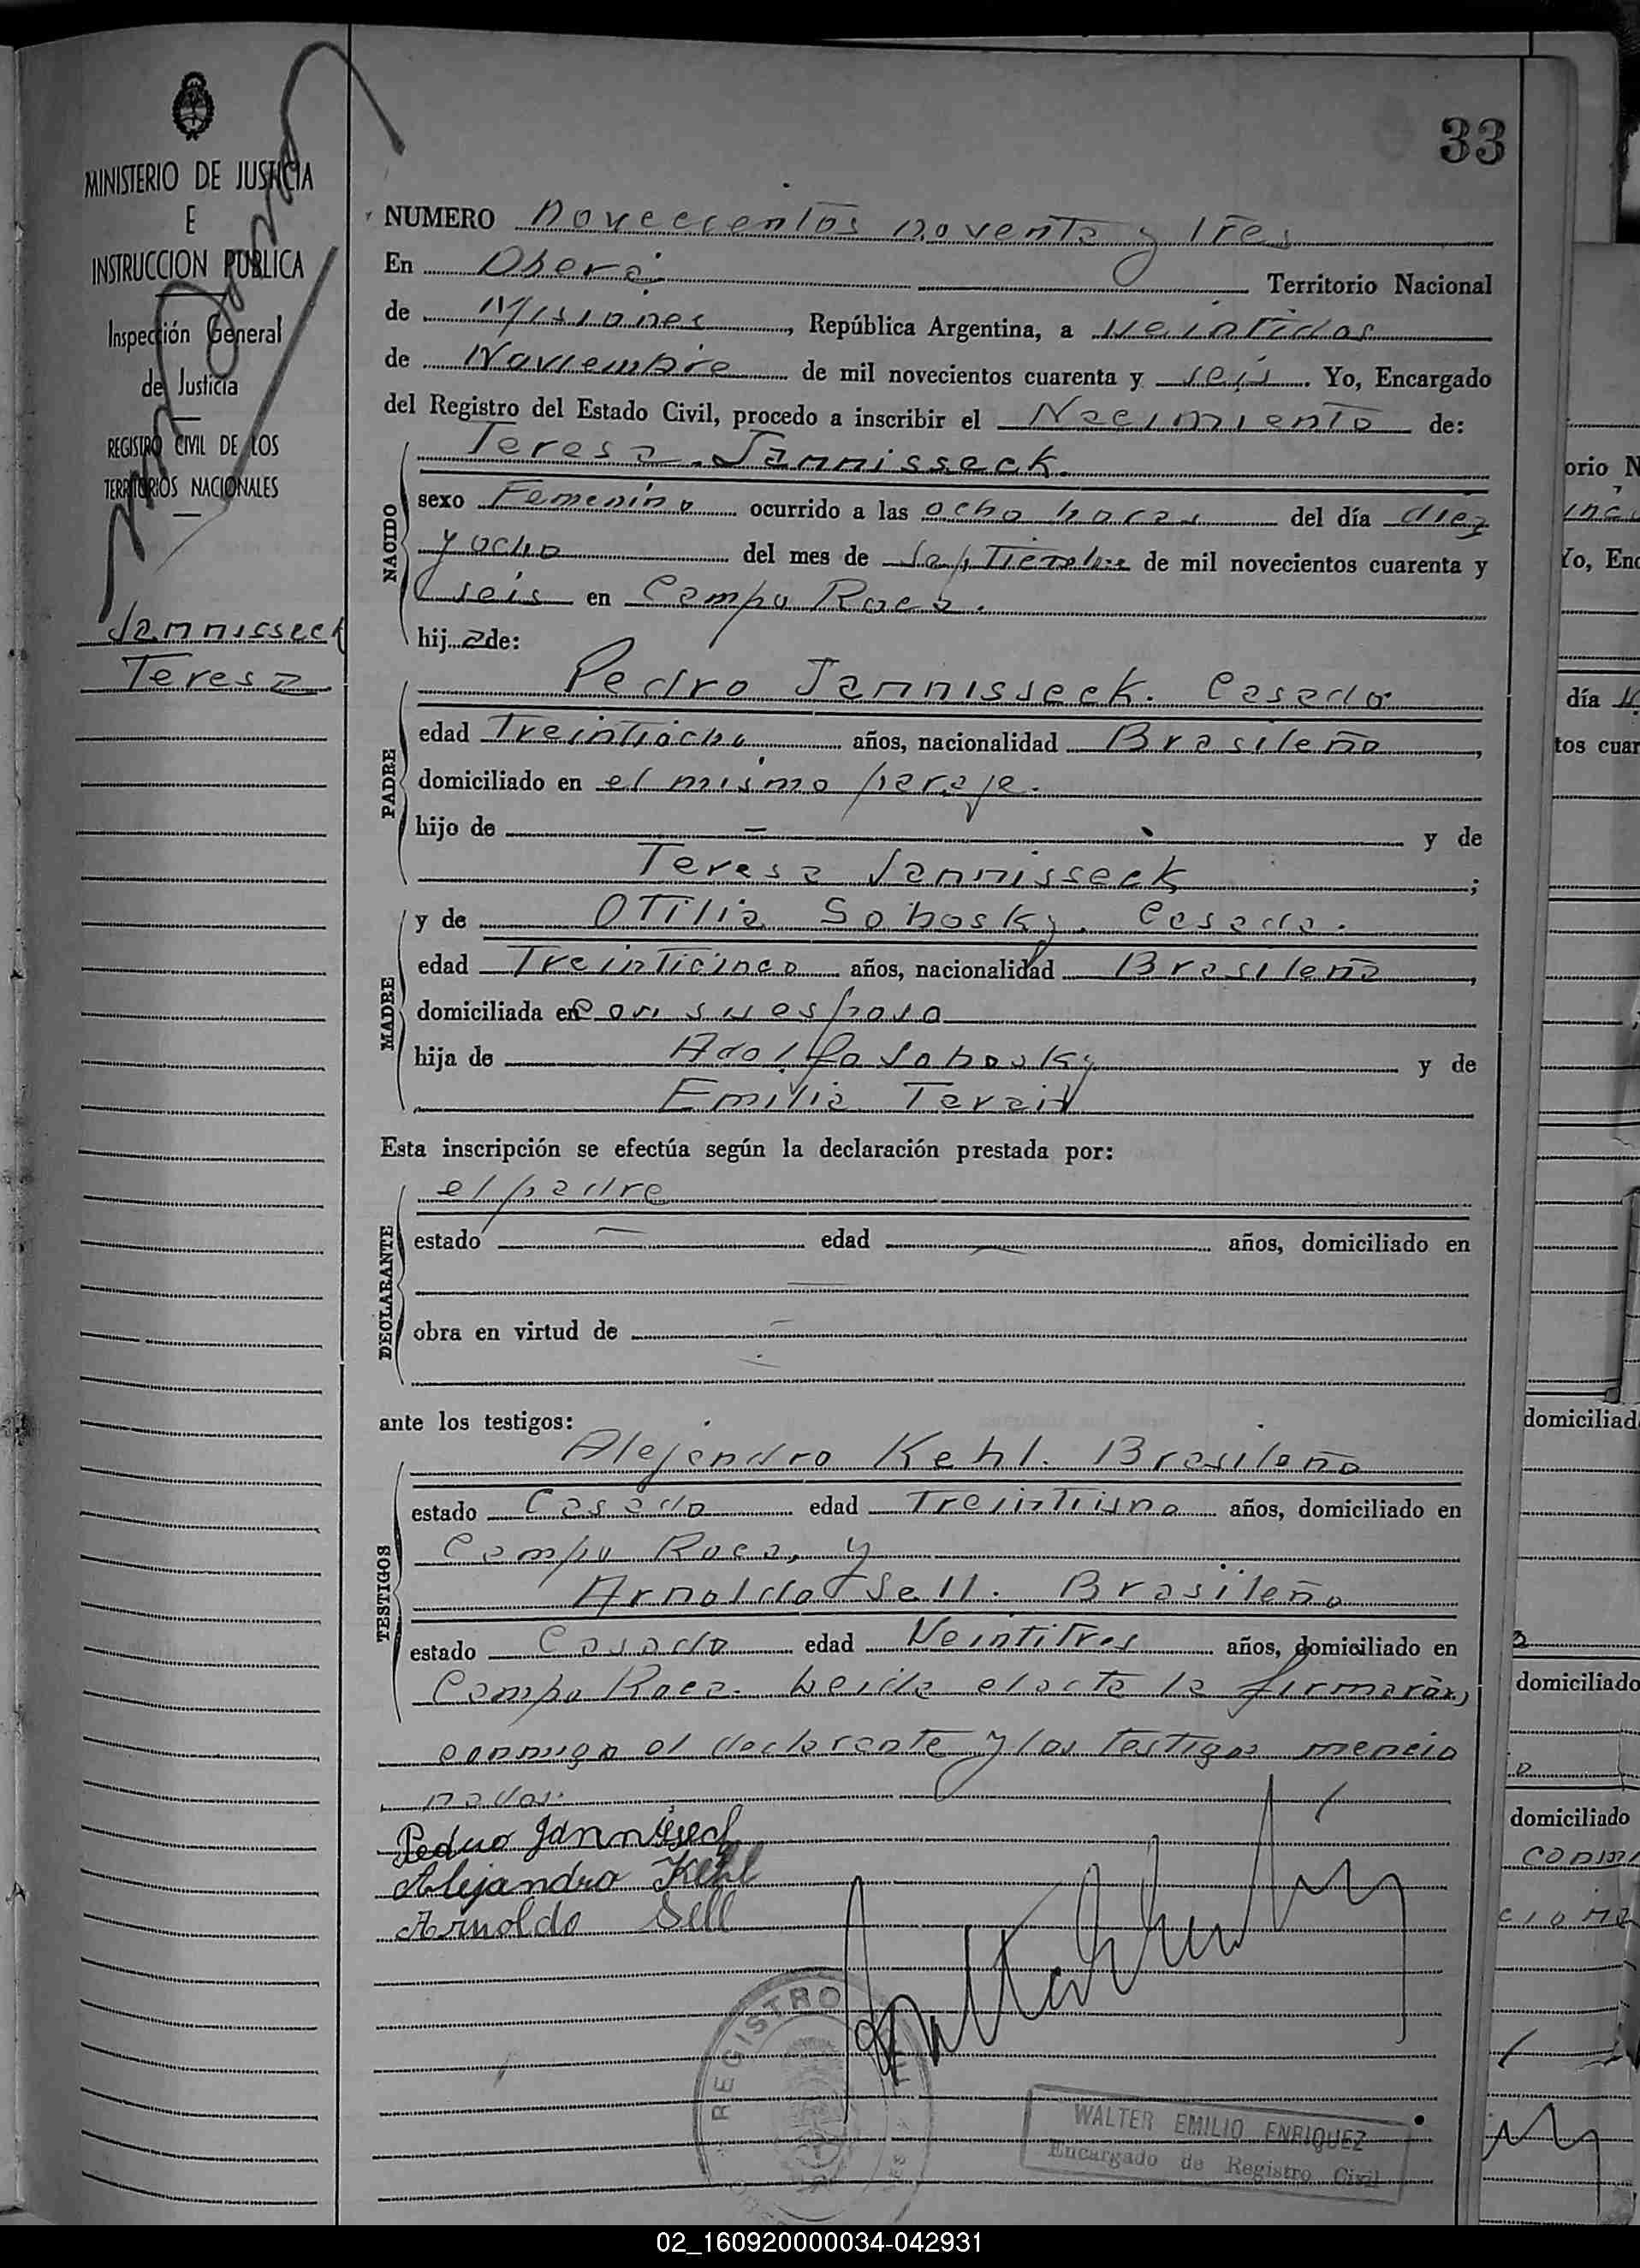 33
MINISTERIO DE JUSTICIA
E
INSTRUCCION PUBLICA
Inspección General
de Justicia
REGISTRO CIVIL DE LOS
TERRITORIOS NACIONALES
Jannisseck
Teresa
NUMERO Novecientos noventa y tres
En Oberá Territorio Nacional
de Misiones, República Argentina, a Veintidos
de Noviembre de mil novecientos cuarenta y seis. Yo, Encargado
del Registro del Estado Civil, procedo a inscribir el Nacimiento de:
NACIDO
Teresa Jannisseck.
sexo Femenino ocurrido a las ocho horas del día diez
y ocho del mes de Septiembre de mil novecientos cuarenta y
seis en Campo Roca.
hij a de:
PADRE
Pedro Jannisseck. Casado
edad Treintiocho años, nacionalidad Brasileño,
domiciliado en el mismo paraje.
hijo de — y de
Teresa Jannisseck;
MADRE
y de Otilia Sobosky. Casada.
edad Treinticinco años, nacionalidad Brasileña,
domiciliada en Con su esposo
hija de Adolfo Sobosky y de
Emilia
Esta inscripción se efectúa según la declaración prestada por:
DECLARANTE
el padre
estado — edad — años, domiciliado en
—
obra en virtud de —
—
ante los testigos:
TESTIGOS
Alejandro Kehl. Brasileño
estado Casado edad Treintiuno años, domiciliado en
Campo Roca, y
Arnoldo Sell. Brasileño
estado Casado edad Veintitres años, domiciliado en
Campo Roca. Leida el acta la firmarán,
conmigo el declarante y los testigos mencio
nados.
Pedro Jannisseck
Alejandro Kehl
Arnoldo Sell
REGISTRO
WALTER EMILIO ENRIQUEZ
Encargado de Registro Civil
orio N
Yo, Enc
día
tos cuar
domiciliad
domiciliado
domiciliado
02_160920000034-042931